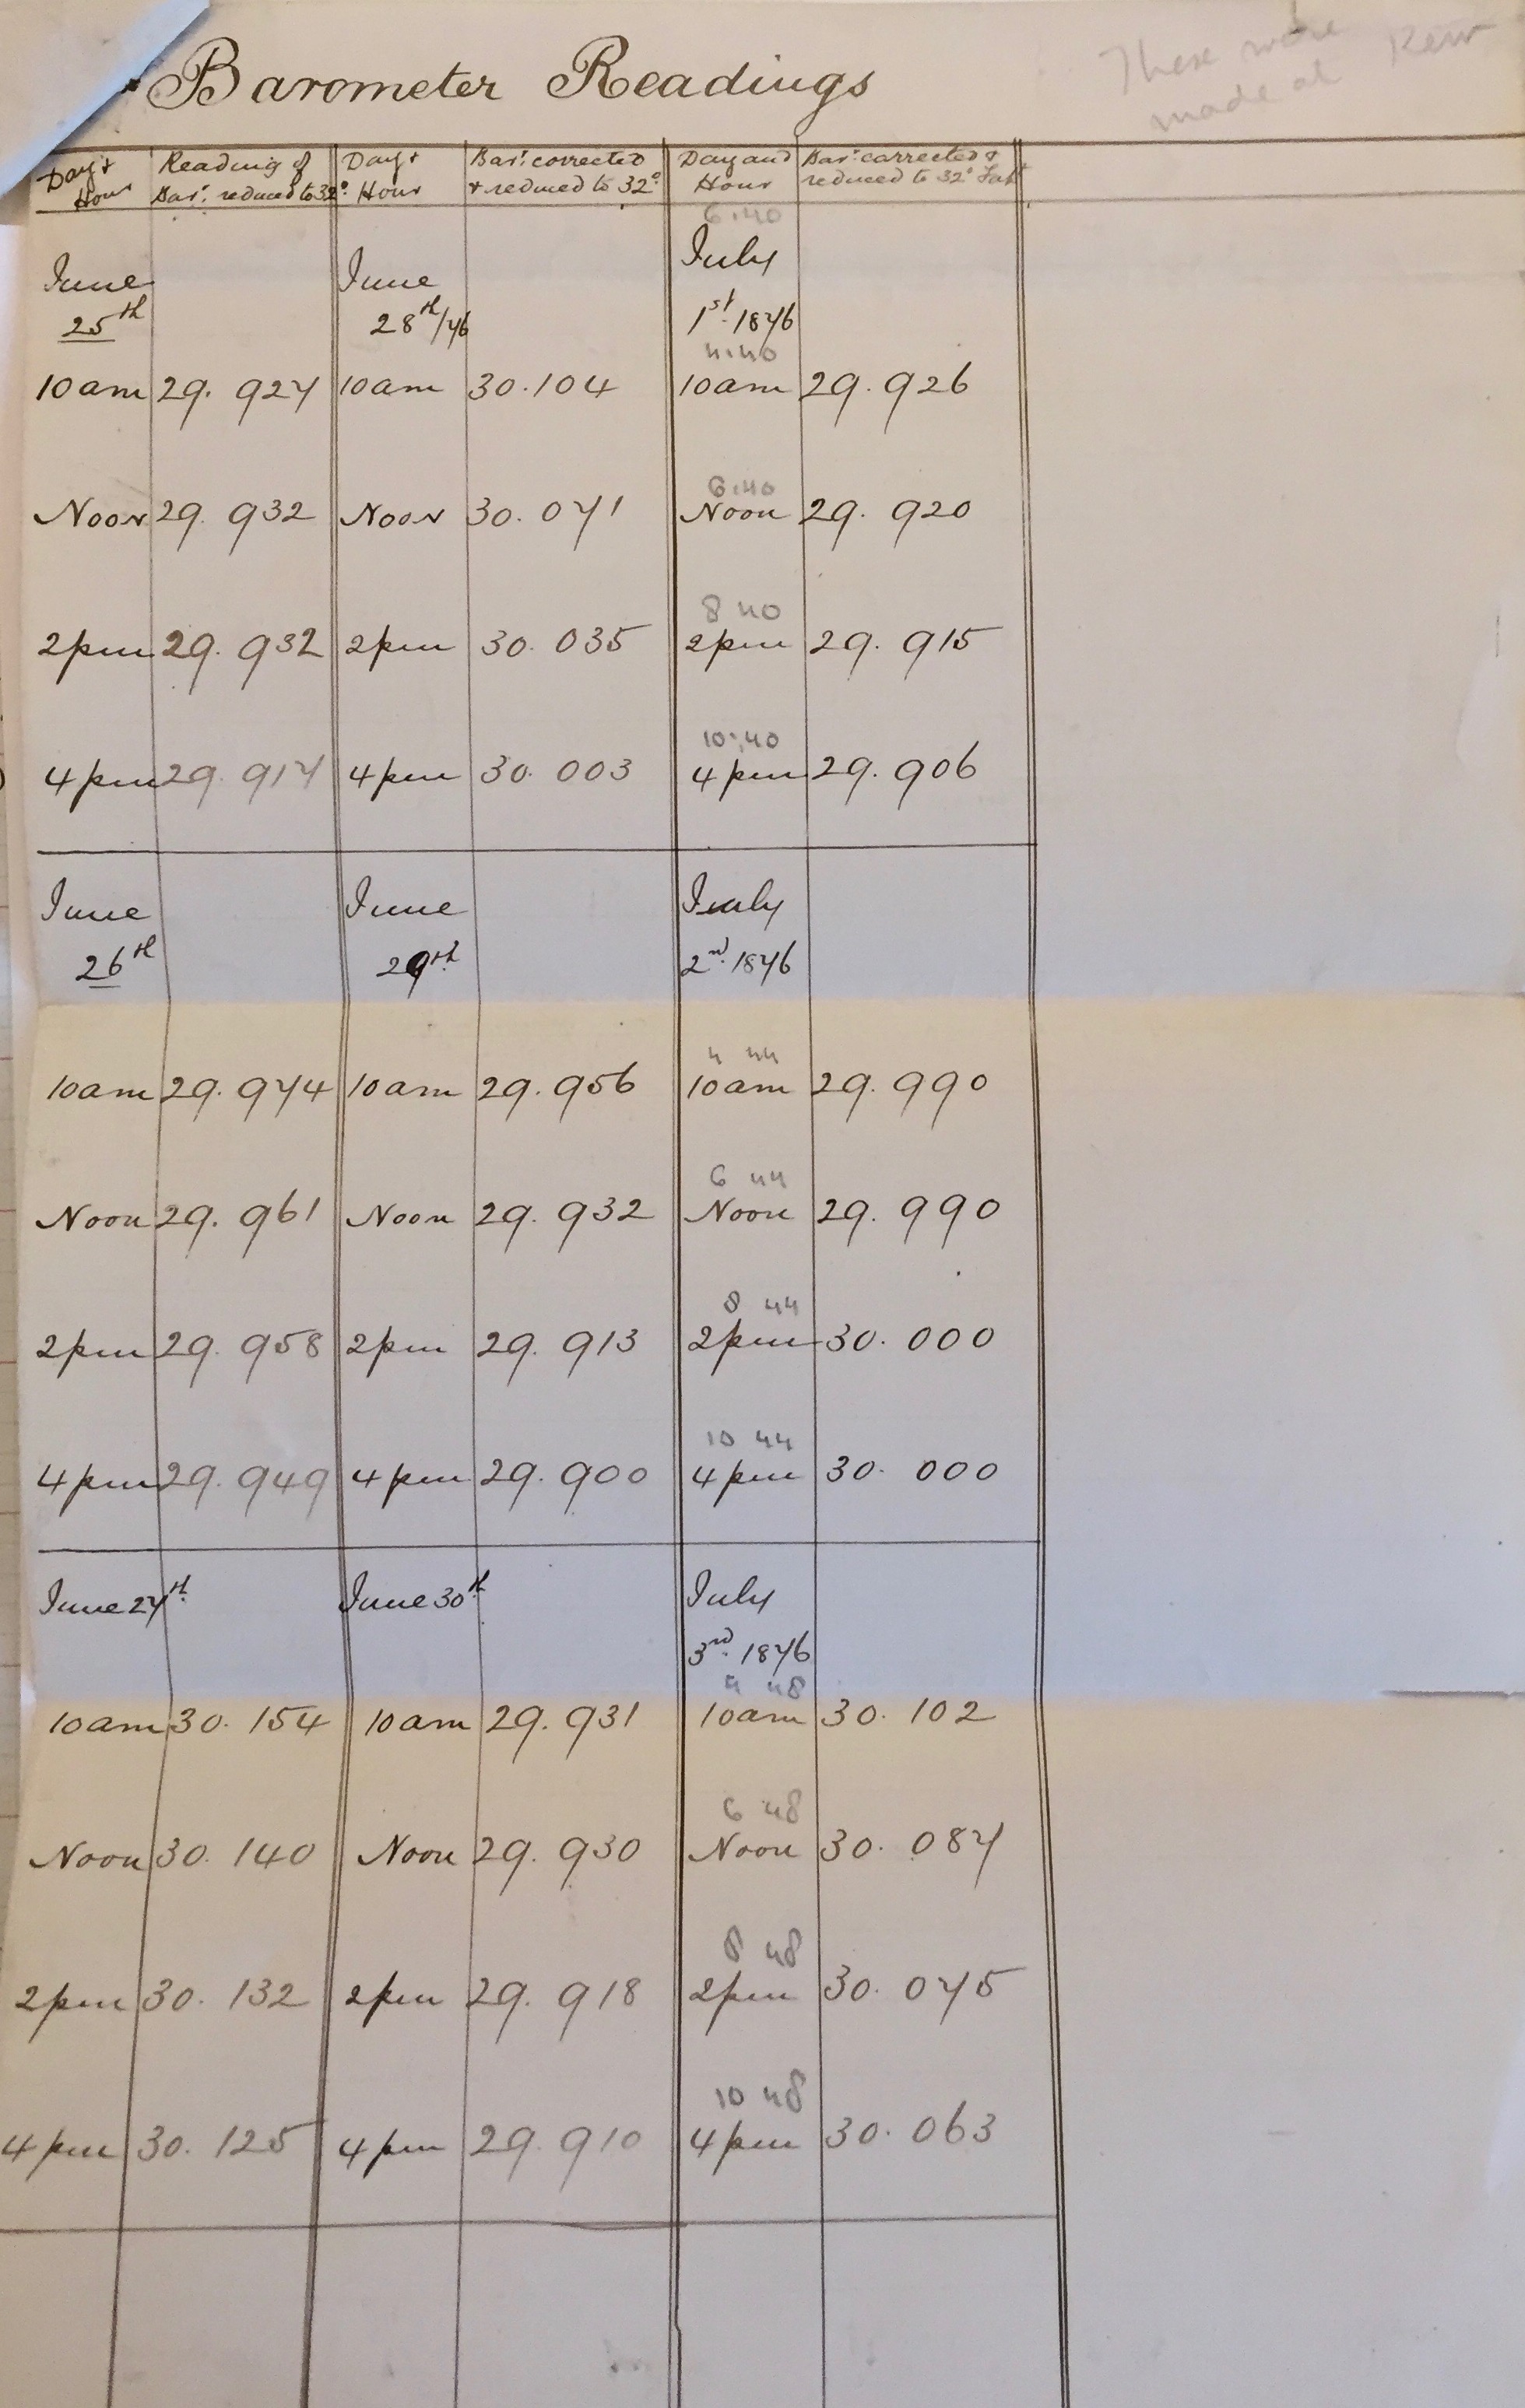 Barometer Readings
These were
made at Kew
Day & Hour | Reading of Bar. reduced to 32° | Day & Hour | Bar. corrected & reduced to 32° | Day and Hour | Bar. corrected & reduced to 32° Fah
6.40
June 25th | June 28th/76 | July 1st. 1876
4.40
10am | 29.927 | 10am | 30.104 | 10am | 29.926
6.40
Noon | 29.932 | Noon | 30.071 | Noon | 29.920
8 40
2pm | 29.932 | 2pm | 30.035 | 2pm | 29.915
10.40
4pm | 29.917 | 4pm | 30.003 | 4pm | 29.906
June 26th | June 29th | July 2nd. 1876
4 44
10am | 29.974 | 10am | 29.956 | 10am | 29.990
6 44
Noon | 29.961 | Noon | 29.932 | Noon | 29.990
8 44
2pm | 29.958 | 2pm | 29.913 | 2pm | 30.000
10 44
4pm | 29.949 | 4pm | 29.900 | 4pm | 30.000
June 27th | June 30th | July 3rd. 1876
4 48
10am | 30.154 | 10am | 29.931 | 10am | 30.102
6 48
Noon | 30.140 | Noon | 29.930 | Noon | 30.087
8 48
2pm | 30.132 | 2pm | 29.918 | 2pm | 30.075
10 48
4pm | 30.125 | 4pm | 29.910 | 4pm | 30.063